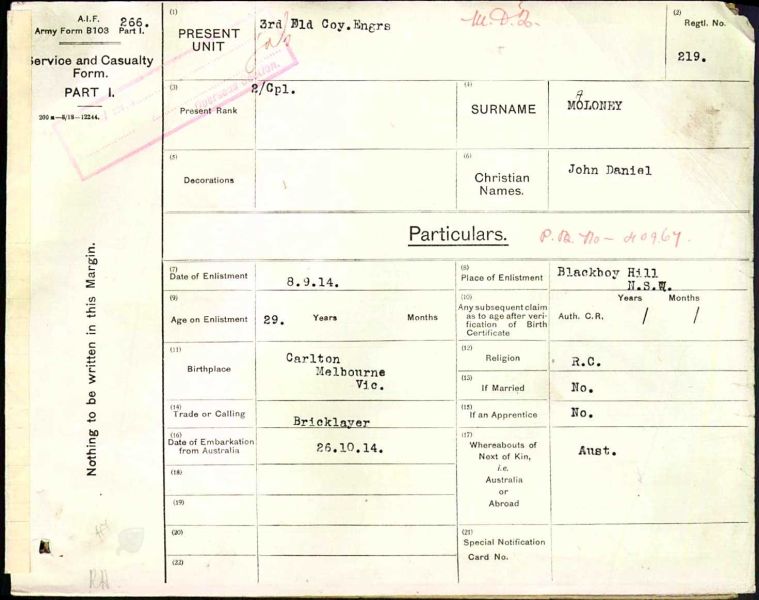 A.I.F. 266.
Army Form B103 Part I.
Service and Casualty
Form.
PART I.
200 M—8/18—12244.
Nothing to be written in this Margin.
(1) PRESENT UNIT 3rd Fld Coy. Engrs
(2) Regtl. No. 219.
(3) Present Rank 2/Cpl.
(4) SURNAME MOLONEY
(5) Decorations
(6) Christian Names. John Daniel
Particulars.
(7) Date of Enlistment 8.9.14.
(8) Place of Enlistment Blackboy Hill
N.S.W.
(9) Age on Enlistment 29. Years Months
(10) Any subsequent claim
as to age after veri-
fication of Birth
Certificate
Years Months
Auth. C.R. / /
(11) Birthplace Carlton
Melbourne
Vic.
(12) Religion R.C.
(13) If Married No.
(14) Trade or Calling Bricklayer
(15) If an Apprentice No.
(16) Date of Embarkation
from Australia 26.10.14.
(17) Whereabouts of
Next of Kin,
i.e.
Australia
or
Abroad
Aust.
(18)
(19)
(20)
(21) Special Notification
Card No.
(22)